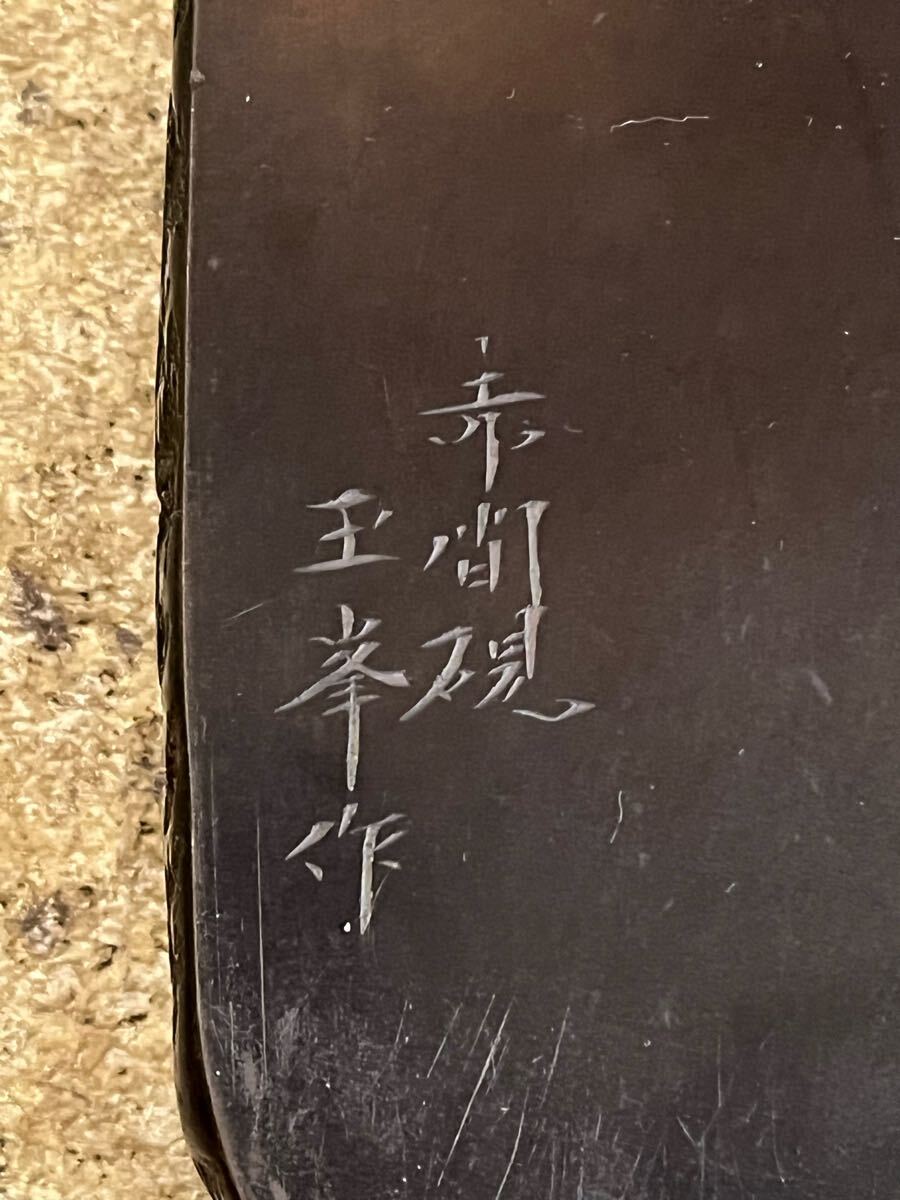 赤間硯
玉峯作